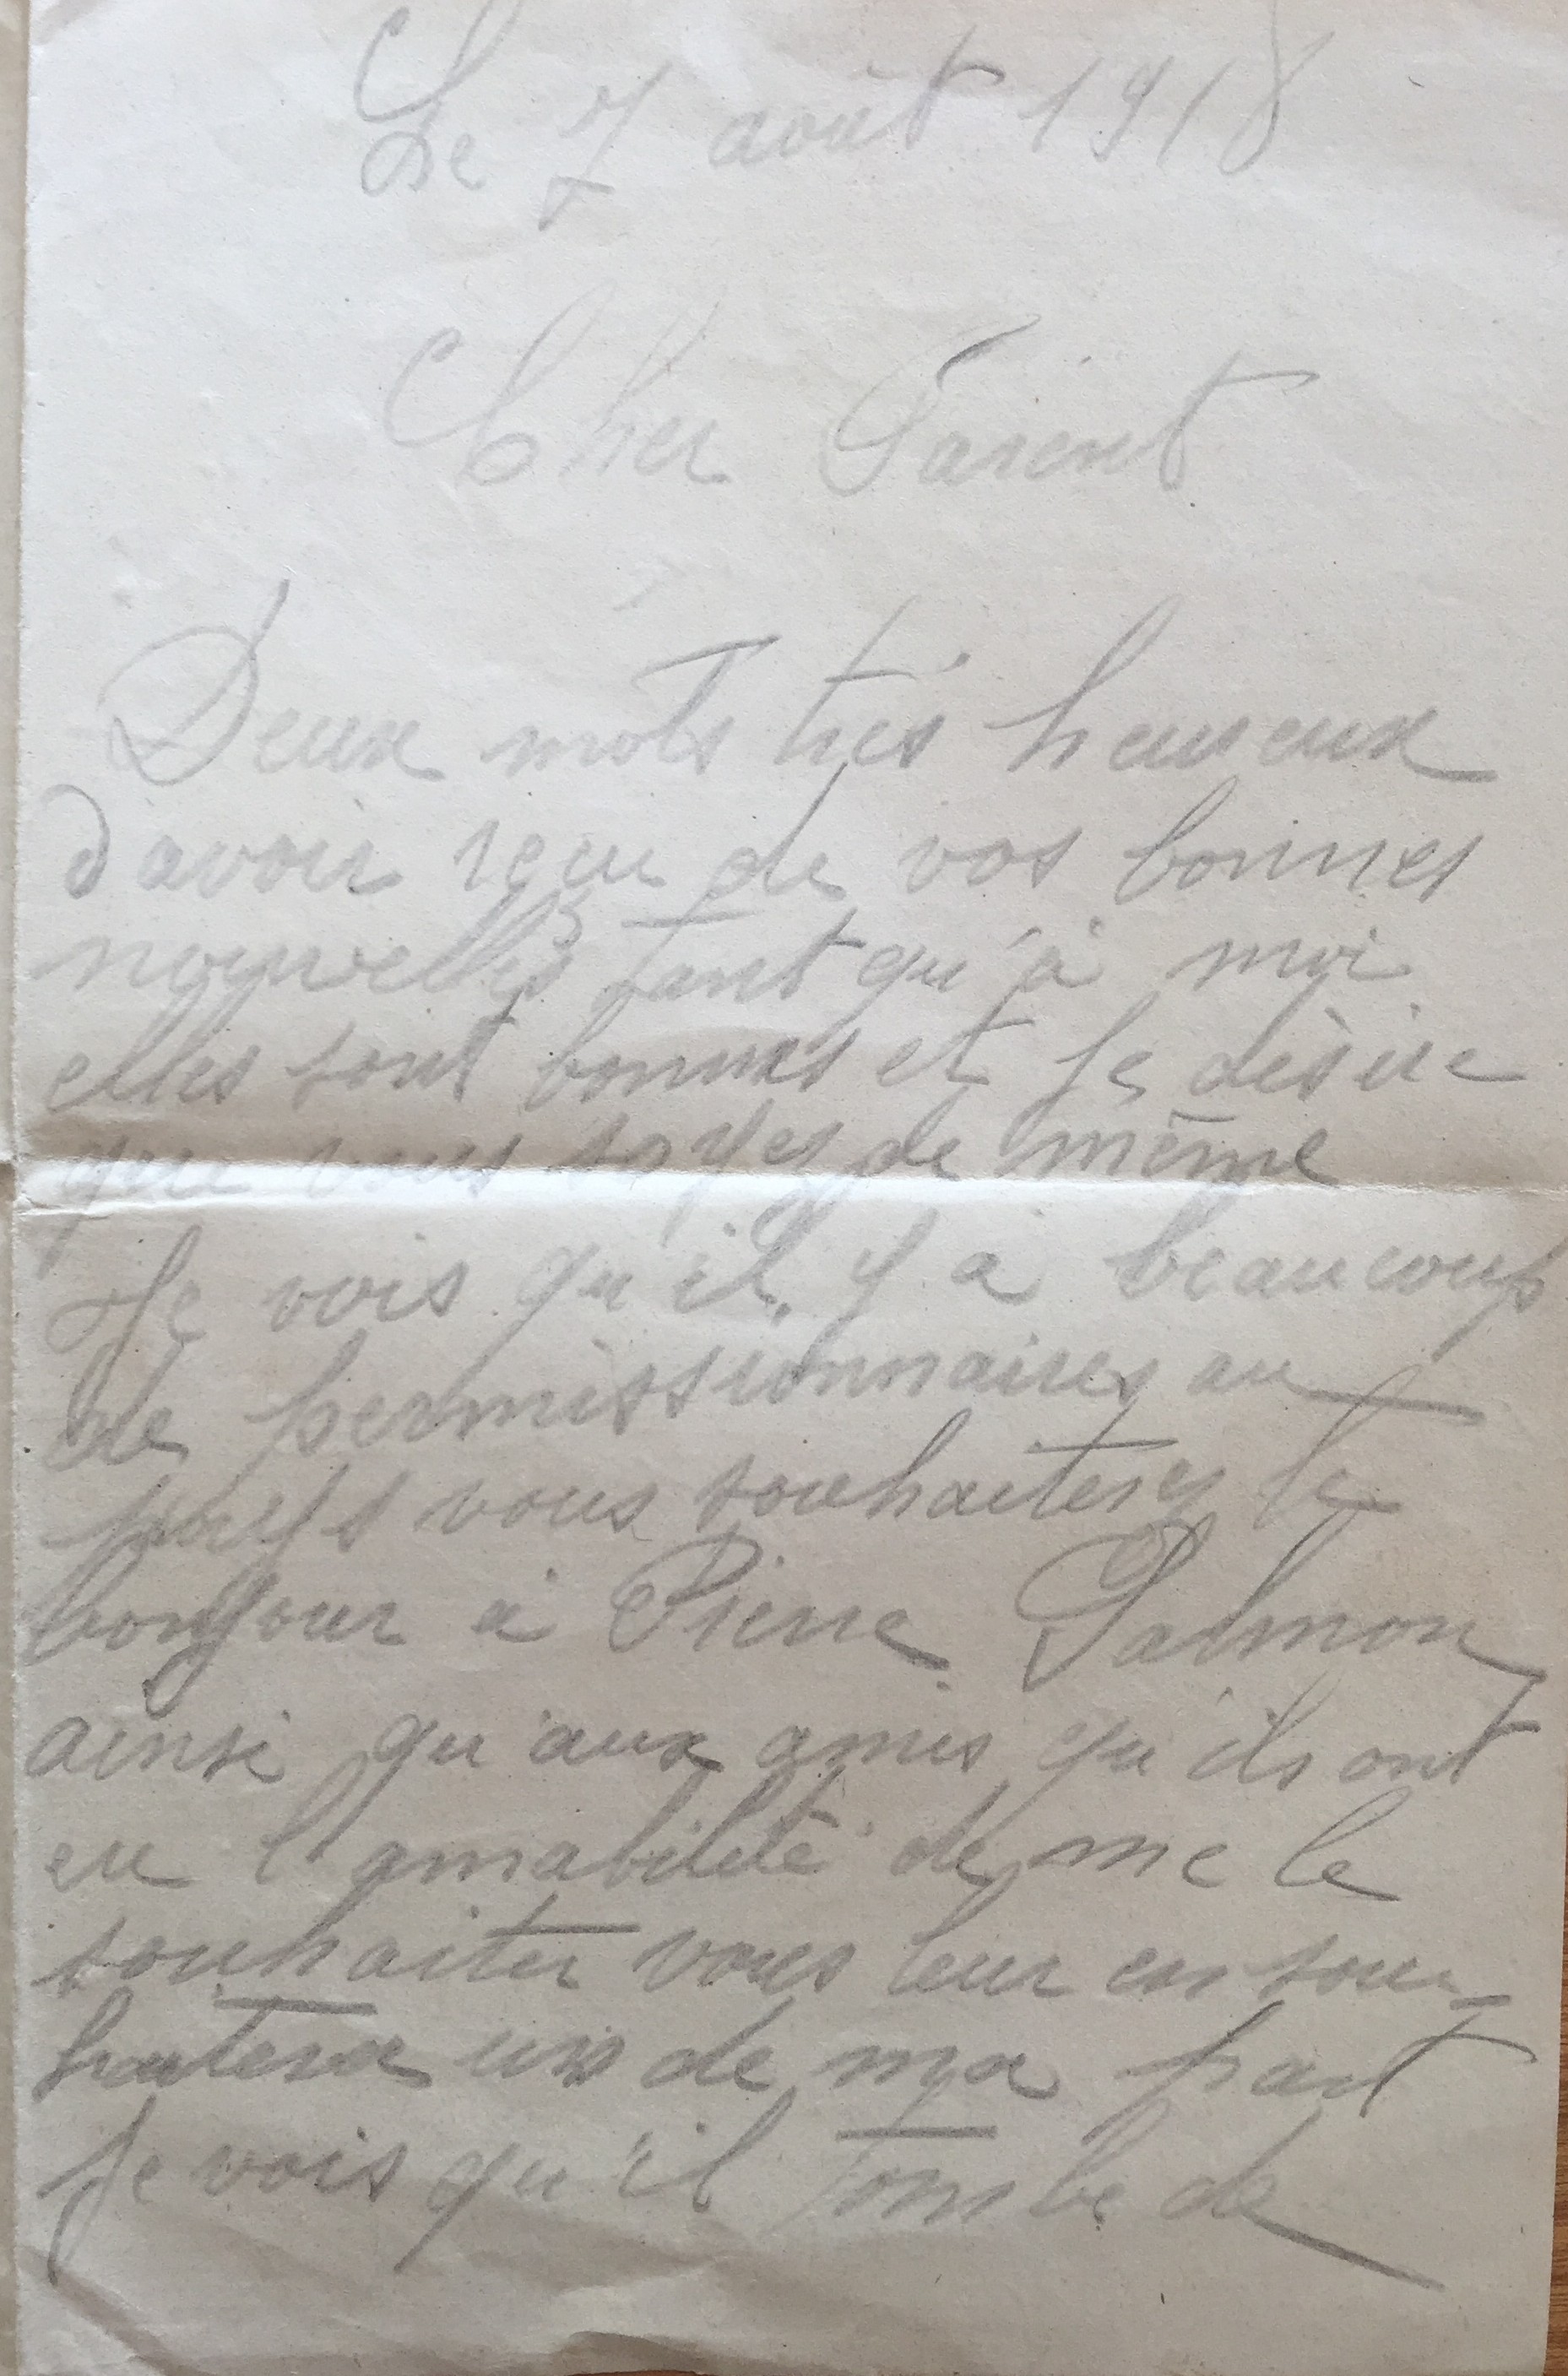 Le 7 août 1918
Cher Parent
Deux mots très heureux
d'avoir reçu de vos bonnes
nouvelles tant qu'à moi
elles sont bonnes et je désire
que vous soyez de même
Je vois qu'il y a beaucoup
de permissionnaires au
pays vous souhaiterez le
bonjour à Pierre
ainsi qu'aux amis qu'ils ont
eu l'amabilité de me le
souhaiter vous leur en sou-
haiterez un de ma part
Je vois qu'il tombe de